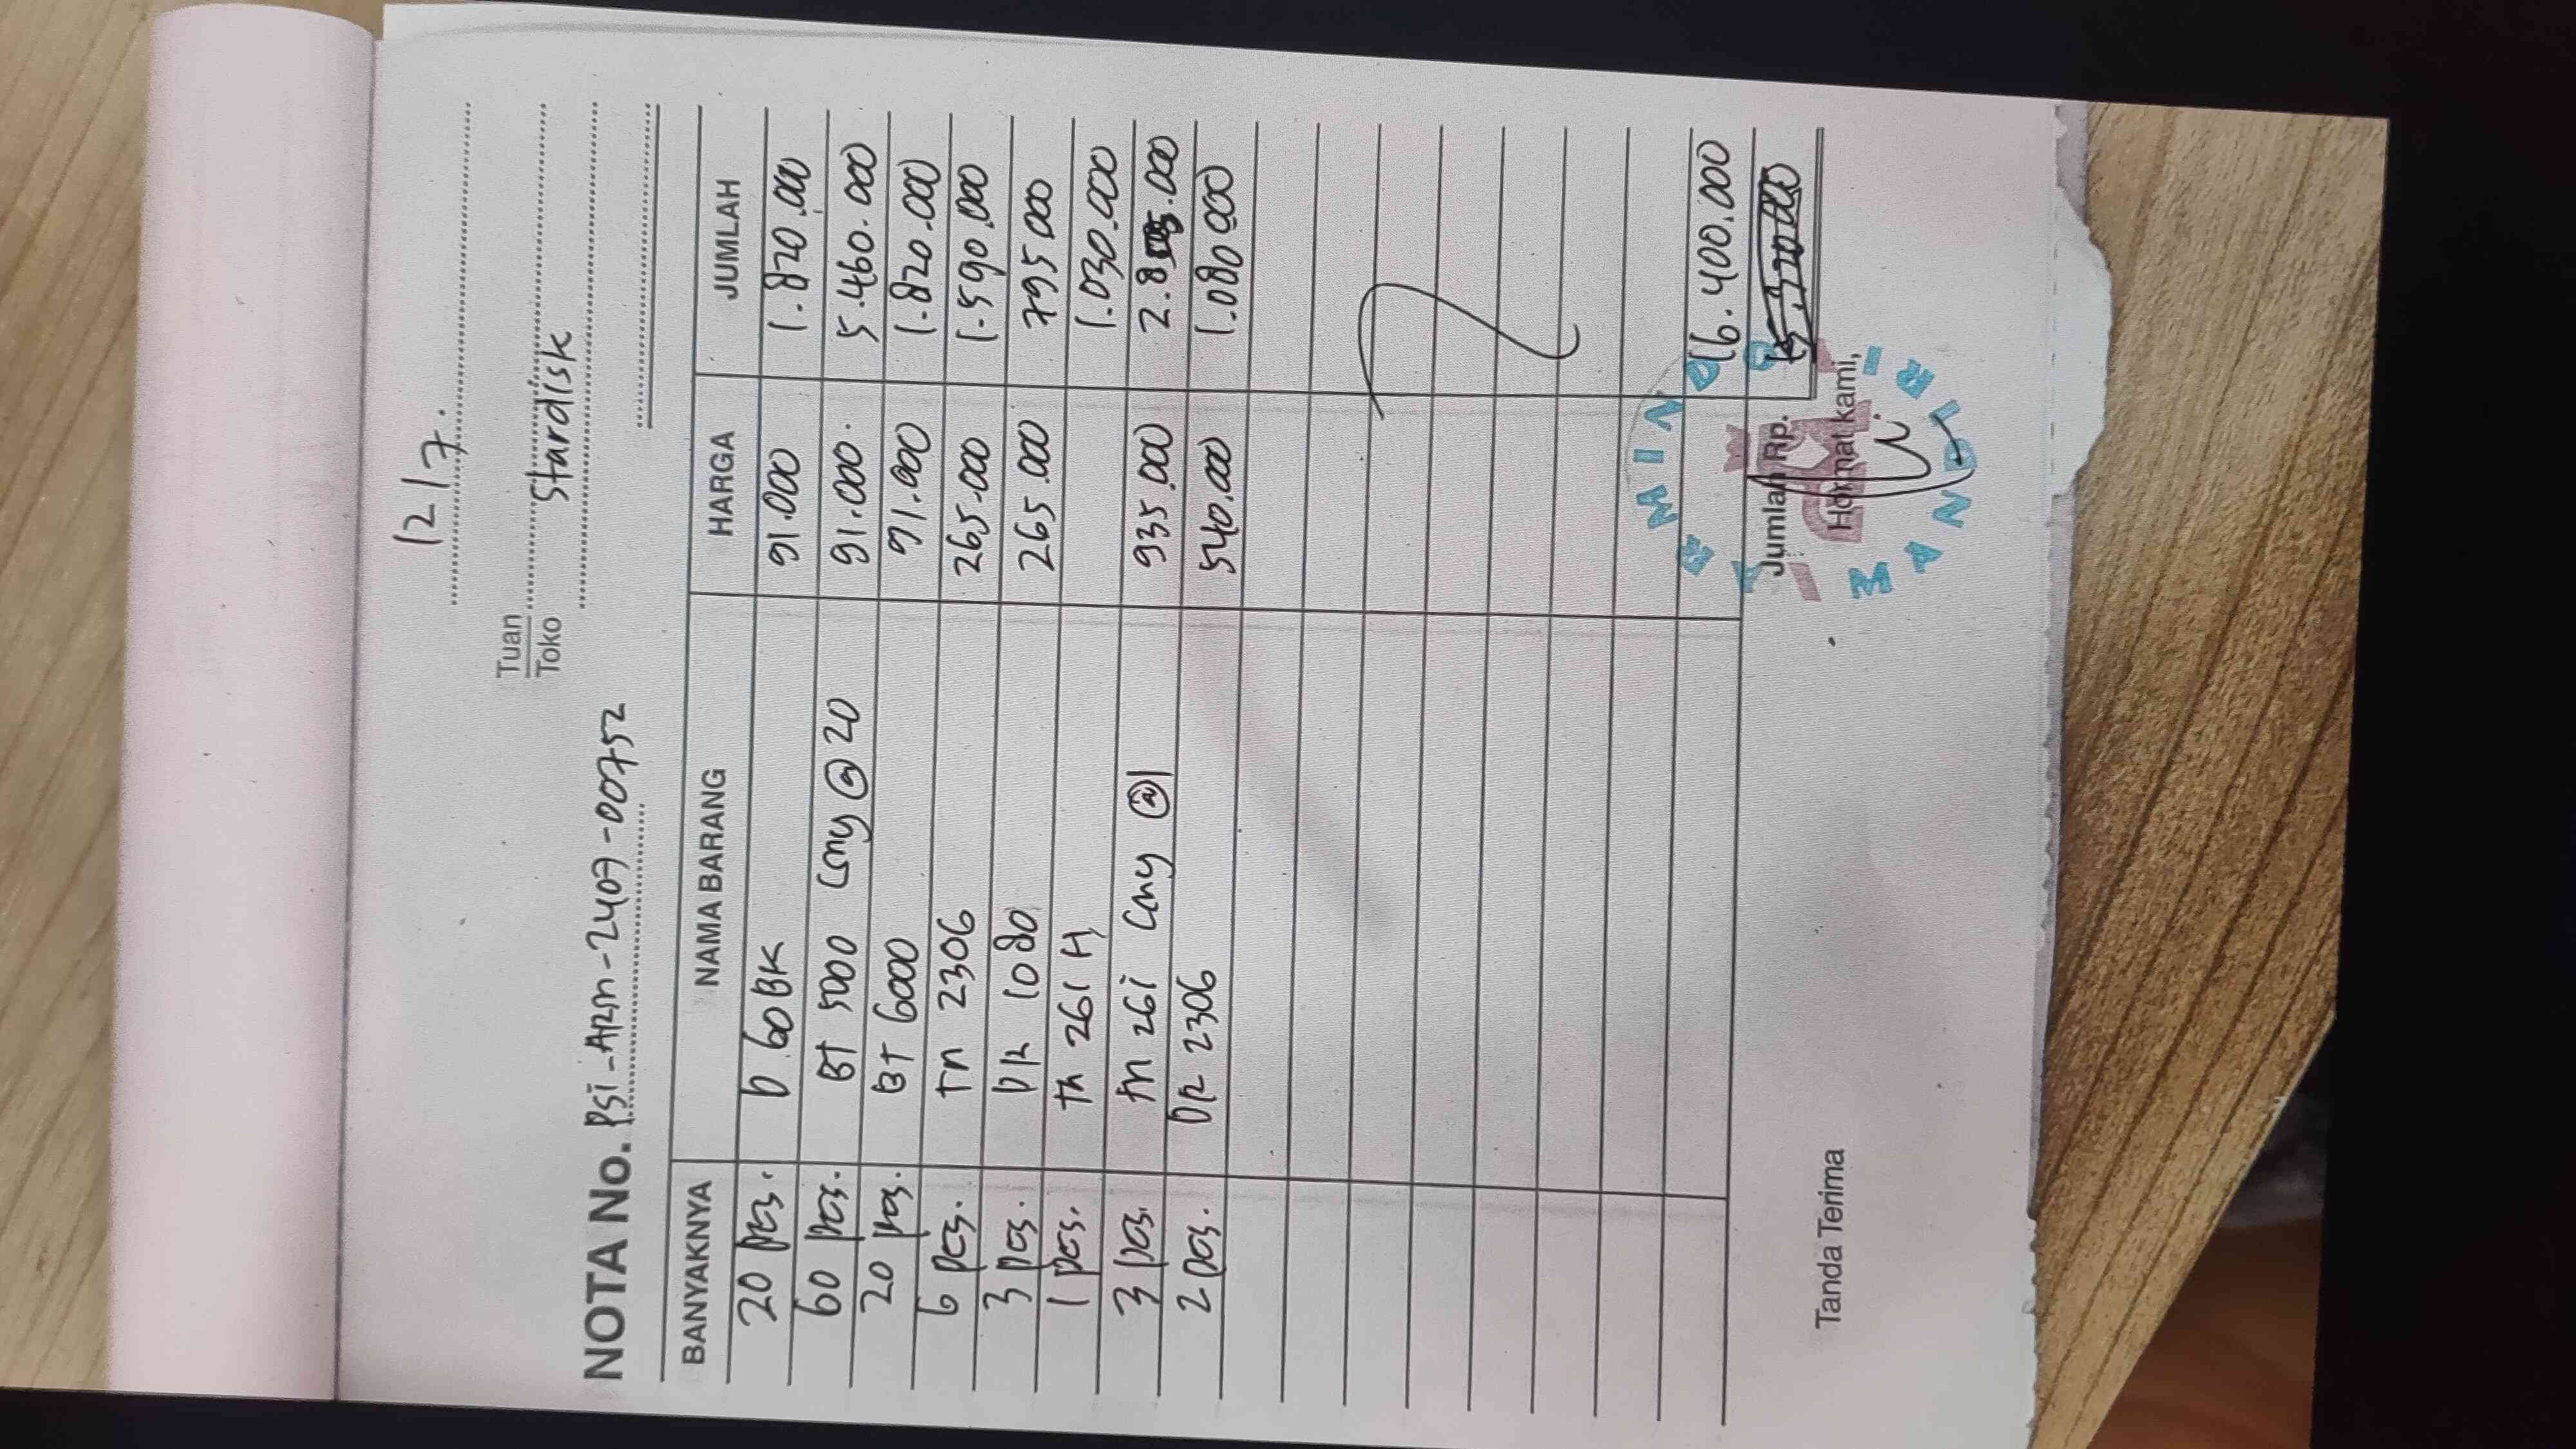 12/7.
Tuan
Toko Stardisk
NOTA No. PSi-Arm-2407-00752
BANYAKNYA NAMA BARANG HARGA JUMLAH
20 pcs. D 60 BK 91.000 1.820.000
60 pcs. BT 5000 Cmy @ 20 91.000. 5.460.000
20 pcs. BT 6000 91.000 1.820.000
6 pcs. Tn 2306 265.000 1.590.000
3 pcs. DR 1080 265.000 795.000
1 pcs. Tn 261 H 1.030.000
3 pcs. Tn 261 Cmy @1 935.000 2.805.000
2 pcs. DR 2306 540.000 1.080.000
16.400.000
Jumlah Rp.
Tanda Terima Hormat kami,
MANDIRI